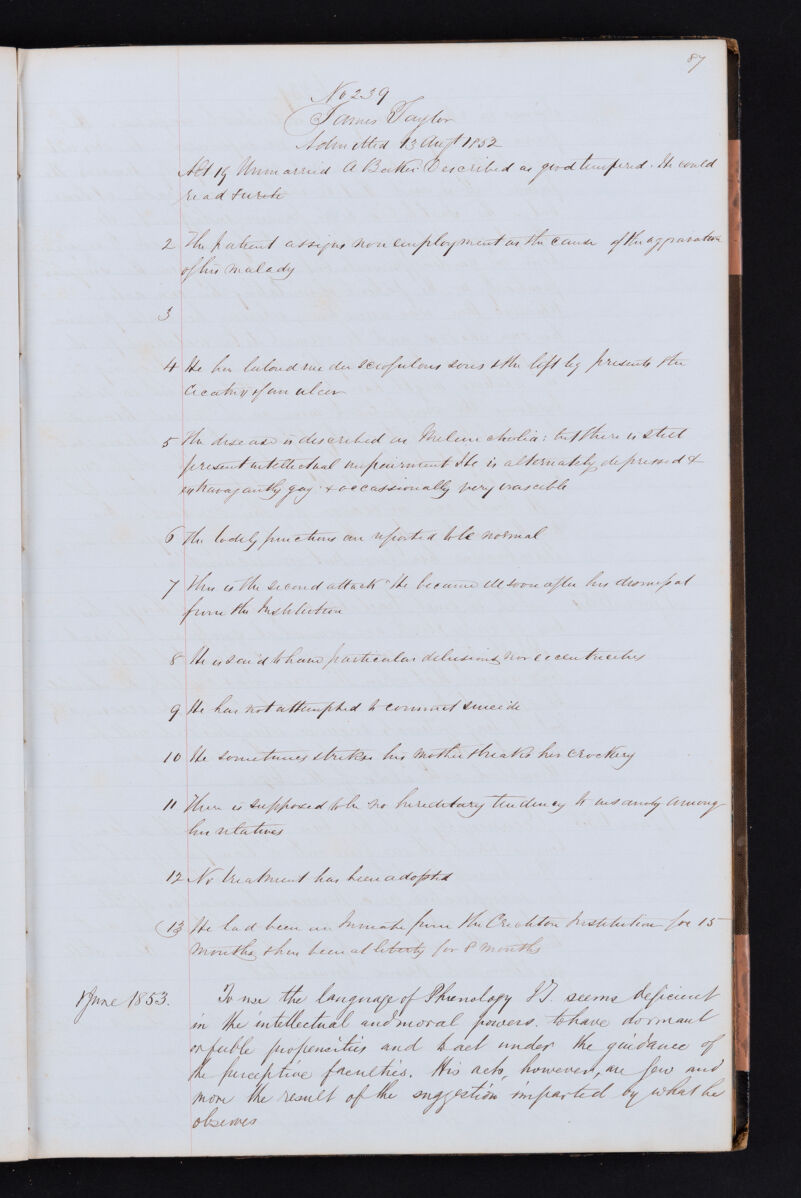 87
No 239
James Taylor
Admitted 13 Augt 1852
Aet 19 Unmarried A Baker Described as good tempered. He could
read & write
2 The patient assigns non employment as the cause of the aggravation
of his malady
3
4 He has laboured under scrofulous sores & the left leg presents the
cicatrix of an ulcer
5 The disease is described as Melancholia: but there is still
present intellectual impairment He is alternately depressed &
extravagantly gay & occassionally very irascible
6 The bodily functions are reported to be normal
7 This is the second attack He became ill soon after his dismissal
from the Institution
8 He is said to have particular delusions nor eccentricities
9 He has not attempted to commit suicide
10 He sometimes strikes his mother & breaks her crockery
11 There is supposed to be no hereditary tendency to insanity among
his relatives
12 No treatment has been adopted
13 He had been an Inmate from the Crichton Institution for 15
months & has been at liberty for 8 months
1 June 1853. To use the language of Phrenology J.T. seems deficient
in the intellectual and moral powers. to have dormant
or feeble propensities and to act under the guidance of
the perceptive faculties. His acts, however, are few and
more the result of the suggestion imparted by what he
observes